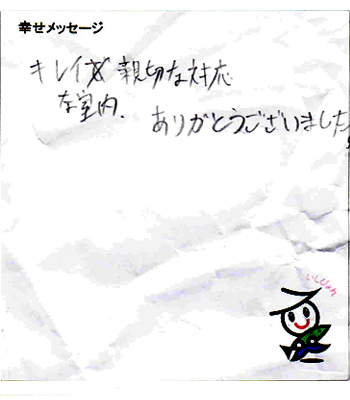 幸せメッセージ
キレイ 親切な対応
な室内、
ありがとうございました